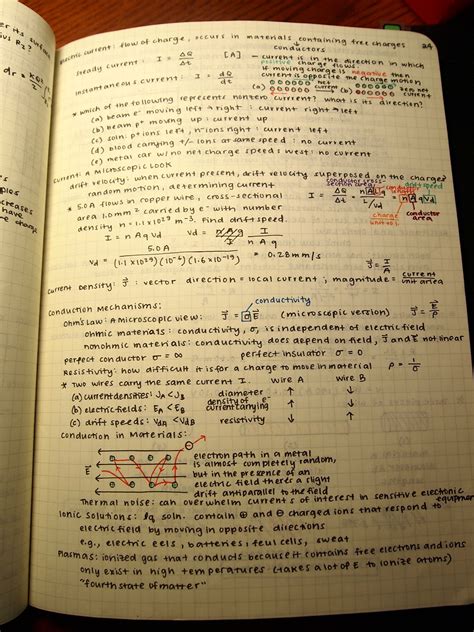 er its surfac
ius R2?
dr = kQr
plos
creases
have
e charge
24
Electric current: flow of charge, occurs in materials containing free charges
↳ conductors
Steady current: I = ΔQ/Δt [A]
Instantaneous current: I = dQ/dt
- current is in the direction in which
positive charge flows
- if moving charge is negative then
current is opposite the charge motion
(a) net current (b) zero net current
* Which of the following represents nonzero current? what is its direction?
(a) beam e⁻ moving left → right : current right → left
(b) beam p⁺ moving up : current up
(c) soln: p⁺ ions left, n⁻ ions right : current left
(d) blood carrying +/- ions at same speed : no current
(e) metal car w/ no net charge speeds west : no current
Current: A Microscopic Look
drift velocity: when current present, drift velocity superposed on the charges'
random motion, determining current
conductor cross-section area
conductor length
drift speed
* 5.0A flows in copper wire, cross-sectional
area 1.0mm² carried by e⁻ with number
density n = 1.1×10²⁹ m⁻³. Find drift speed.
I = ΔQ/Δt = nALq/(L/vd) = nAqvd
charge unit vol.
conductor area
I = nAqvd vd = I/nAq
vd = 5.0A/((1.1×10²⁹)(10⁻⁶)(1.6×10⁻¹⁹)) = 0.28 mm/s
Current Density: J : vector direction = local current; magnitude = current/unit area J = I/A
Conduction Mechanisms:
conductivity
Ohm's Law: A microscopic view: J = σE (microscopic version) J = E/ρ
ohmic materials: conductivity, σ, is independent of electric field
nonohmic materials: conductivity does depend on field, J and E not linear
perfect conductor σ = ∞ perfect insulator σ = 0
Resistivity: how difficult it is for a charge to move in material ρ = 1/σ
* Two wires carry the same current I. Wire A Wire B
(a) current densities: JA < JB diameter ↑ ↓
(b) electric fields: EA < EB density of e⁻ current carrying ↑ ↓
(c) drift speeds: vdA < vdB resistivity ↓ ↑
Conduction in Materials:
E
electron path in a metal
is almost completely random,
but in the presence of an
electric field there's a slight
drift antiparallel to the field
Thermal noise: can overwhelm currents of interest in sensitive electronic equipment
Ionic Solutions: lq soln. contain ⊕ and ⊖ charged ions that respond to
electric field by moving in opposite directions
e.g., electric eels, batteries, fuel cells, sweat
Plasmas: ionized gas that conducts because it contains free electrons and ions
only exist in high temperatures (takes a lot of E to ionize atoms)
"fourth state of matter"